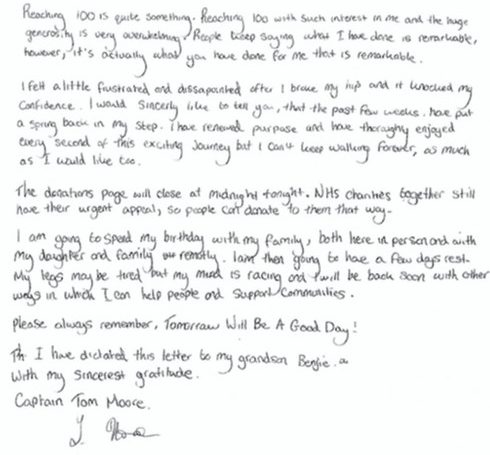 Reaching 100 is quite something. Reaching 100 with such interest in me and the huge
generosity is very overwhelming. People keep saying what I have done is remarkable,
however, it's actually what you have done for me that is remarkable.
I felt a little frustrated and dissapointed after I broke my hip and it knocked my
confidence. I would sincerly like to tell you, that the past few weeks. have put
a spring back in my step. I have renewed purpose and have thoroughy enjoyed
every second of this exciting journey but I can't keep walking forever, as much
as I would like too.
The donations page will close at midnight tonight. NHS Charities together still
have their urgent appeal, so people can donate to them that way-
I am going to spend my birthday with my family, both here in person and with
My daughter and family remotly. I am then going to have a few days rest.
My legs may be tired but my mind is racing and I will be back soon with other
ways in which I can help people and support communities.
Please always remember, Tomorrow Will Be A Good Day!
I have dictated this letter to my grandson Benjie.
With my sincerest gratitude.
Captain Tom Moore.